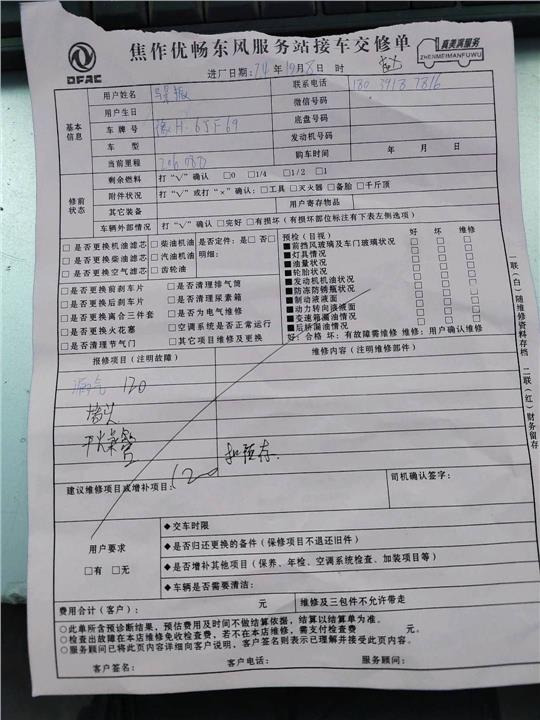 DFAC
焦作优畅东风服务站接车交修单
真美满服务
ZHENMEIMANFUWU
进厂日期: 年 10月 8日 时
基本信息
用户姓名
联系电话 180 3918 7816
用户生日
微信号码
车牌号 豫H·6JF69
底盘号
车型
发动机号码
当前里程
购车时间 年 月 日
修前状态
剩余燃料 打"√"确认 □0 □1/4 □1/2 □1
附件状况 打"√"或打"×"确认:□工具 □灭火器 □备胎 □千斤顶
其它装备
用户寄存物品
车辆外部情况 打"√"确认 □完好 □有损坏(有损坏部位标注有下表左侧选项)
□是否更换机油滤芯 □柴油机油 是否定件:是□ 否□
□是否更换柴油滤芯 □汽油机油 明细:
□是否更换空气滤芯 □齿轮油
□是否更换前刹车片 □是否清理排气筒
□是否更换后刹车片 □是否清理尿素箱
□是否更换离合三件套 □是否为电气维修
□是否更换火花塞 □空调系统是否正常运行
□是否清理节气门 □其它项目维修及更换
预检(目视) 好 坏 维修
■前挡风玻璃及车门玻璃状况 □ □ □
■灯具情况 □ □ □
■油量状况 □ □ □
■轮胎状况 □ □ □
■发动机机油状况 □ □ □
■防冻防锈瓶状况 □ □ □
■制动液液面 □ □ □
■动力转向液液面 □ □ □
■变速箱漏油情况 □ □ □
■后桥漏油情况 □ □ □
好:合格 坏:有故障需维修 维修:用户确认维修
报修项目(注明故障)
维修内容(注明维修部件)
漏气 120
接头
干燥
扣预存.
120
建议维修项目或增补项目:
司机确认签字:
用户要求
□有 □无
◆交车时限
◆是否归还更换的备件(保修项目不退还旧件)
◆是否增补其他项目(保养、年检、空调系统检查、加装项目等)
◆车辆是否需要清洁:
费用合计(客户): 元
维修及三包件不允许带走
○此单所含预诊断结果,预估费用及时间不做结算依据,结算以结算单为准。
○检查出故障在本店维修免收检查费,若不在本店维修,需支付检查费 元。
○服务顾问已将此页内容详细向客户说明,客户签名则表示已理解并接受此页内容。
客户签名: 客户电话: 服务顾问:
一联(白)随维修资料存档
二联(红)财务留存